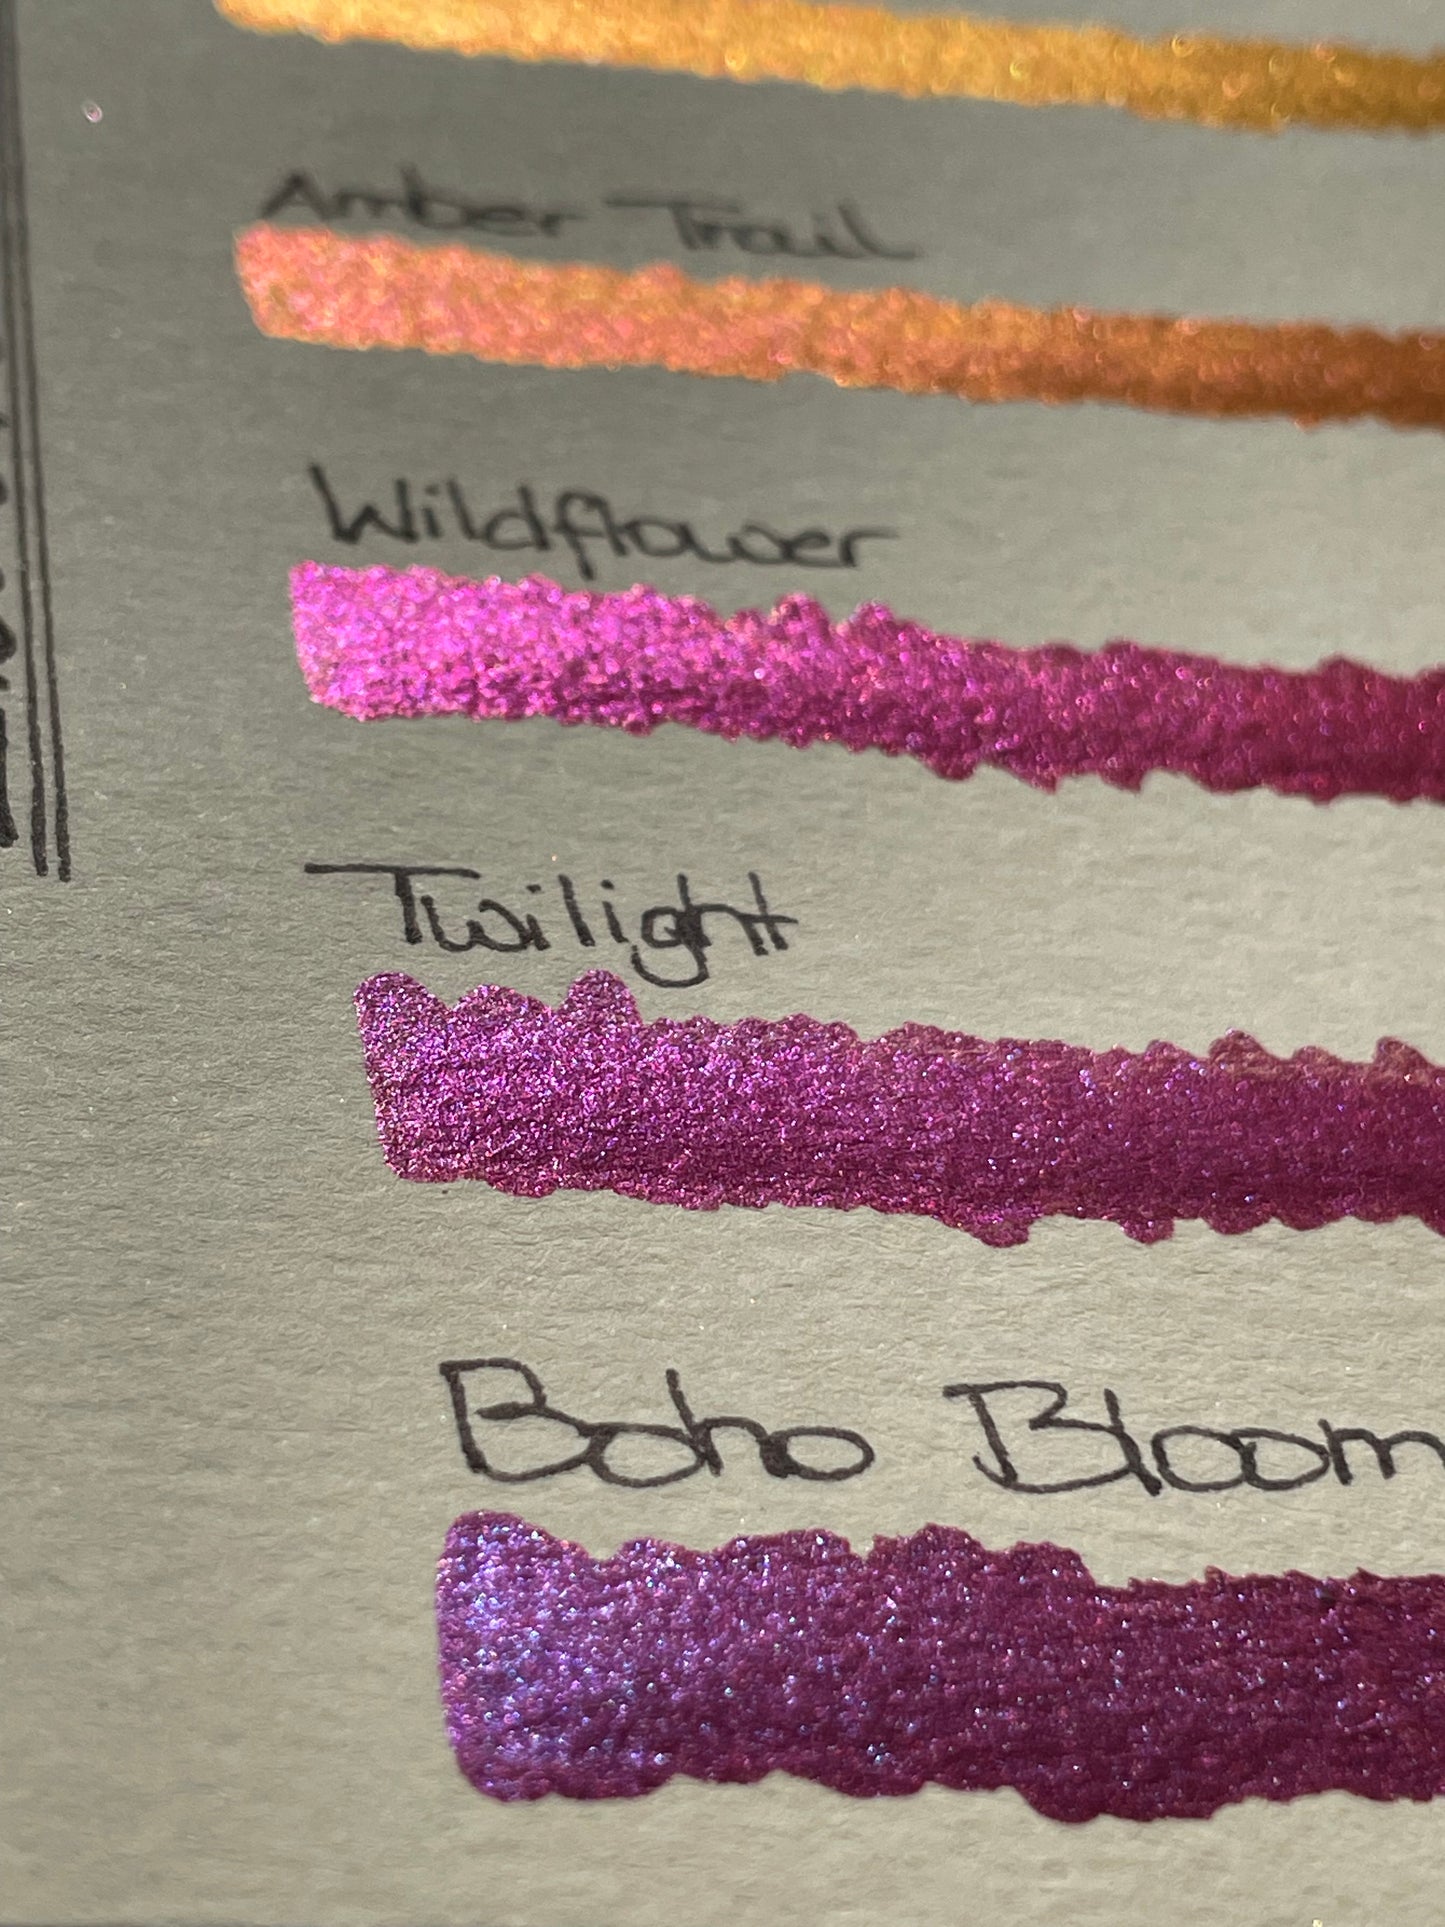 Amber Trail
Wildflower
Twilight
Boho Bloom